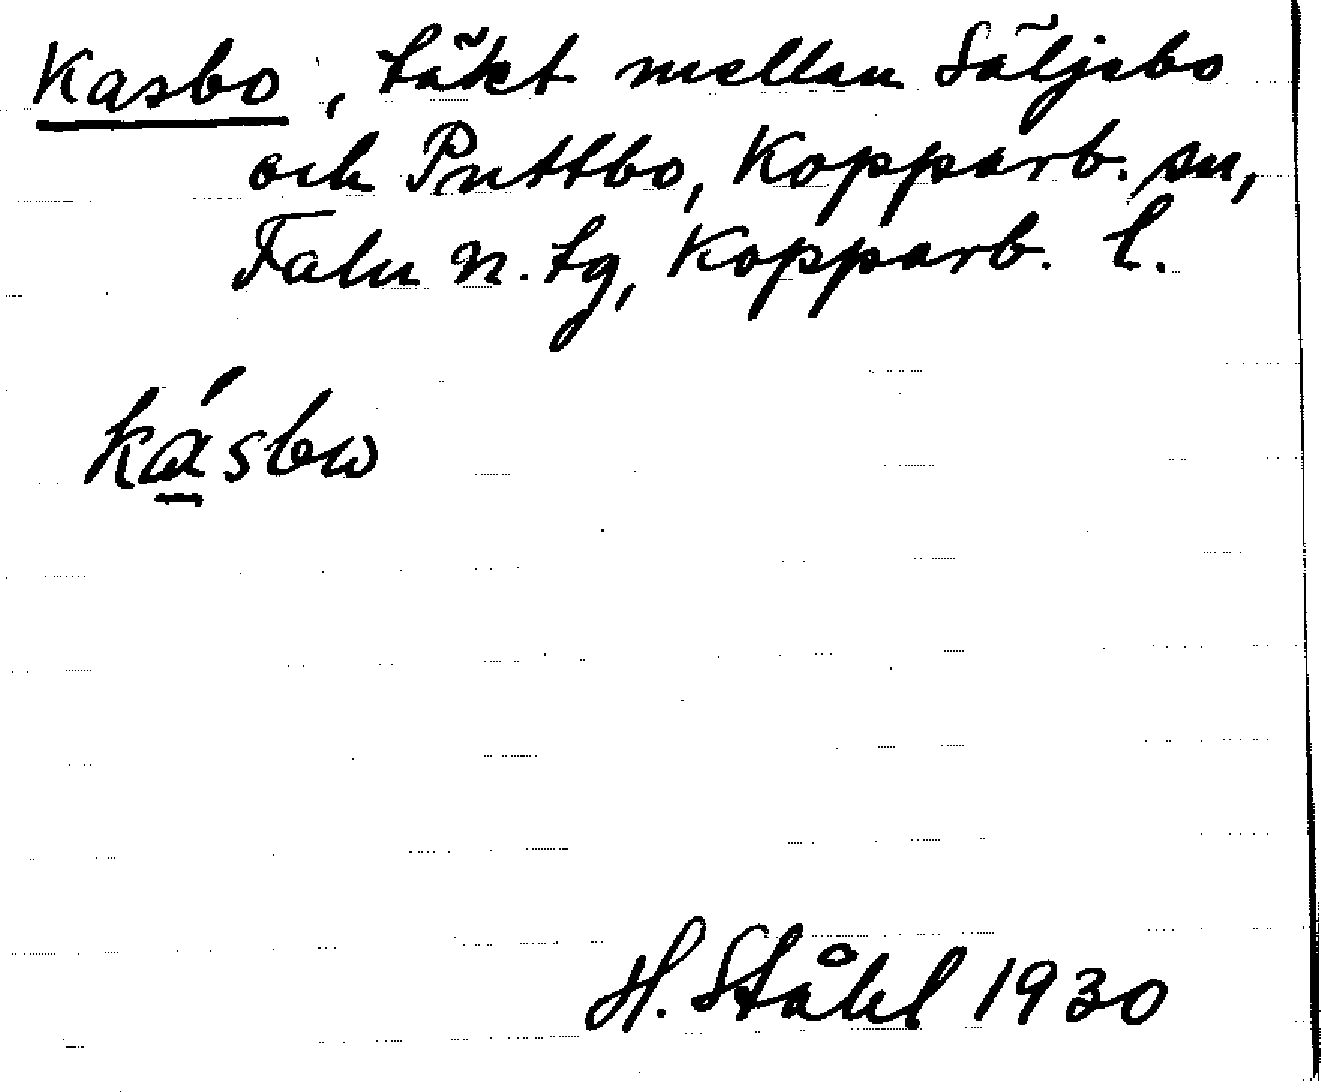 Kasbo, täkt mellan Säljebo
och Puttbo, Kopparb. sn,
Falu n. tg, Kopparb. l.
kásbω
H. Ståhl 1930